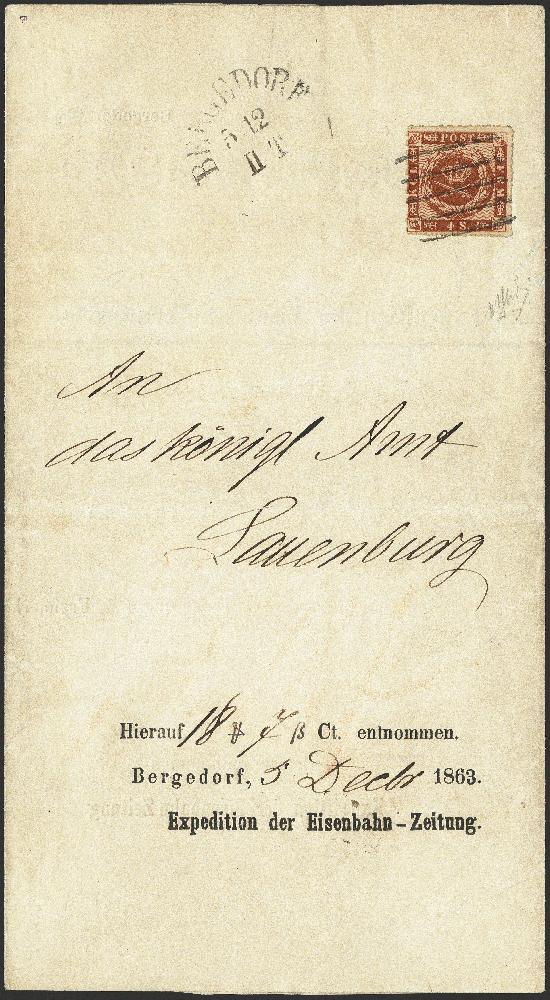 BERGEDORF
5 12
II T
POST
4 S.
An
das königl Amt
Lauenburg
Hierauf 18 ₰ 7 ß Ct. entnommen.
Bergedorf, 5 Decbr 1863.
Expedition der Eisenbahn-Zeitung.